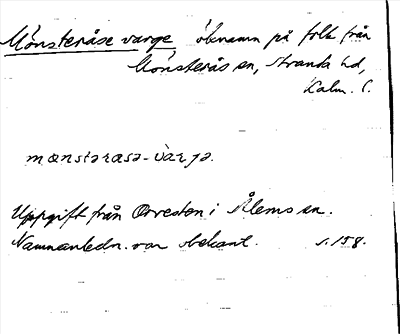 Mönsteråse varge öknamn på folk från
Mönsterås sn, Stranda hd,
Kalm. l.
mønstərasə-varjə.
Uppgift från i Ålems sn.
Namnanledn. var obekant. s. 158.